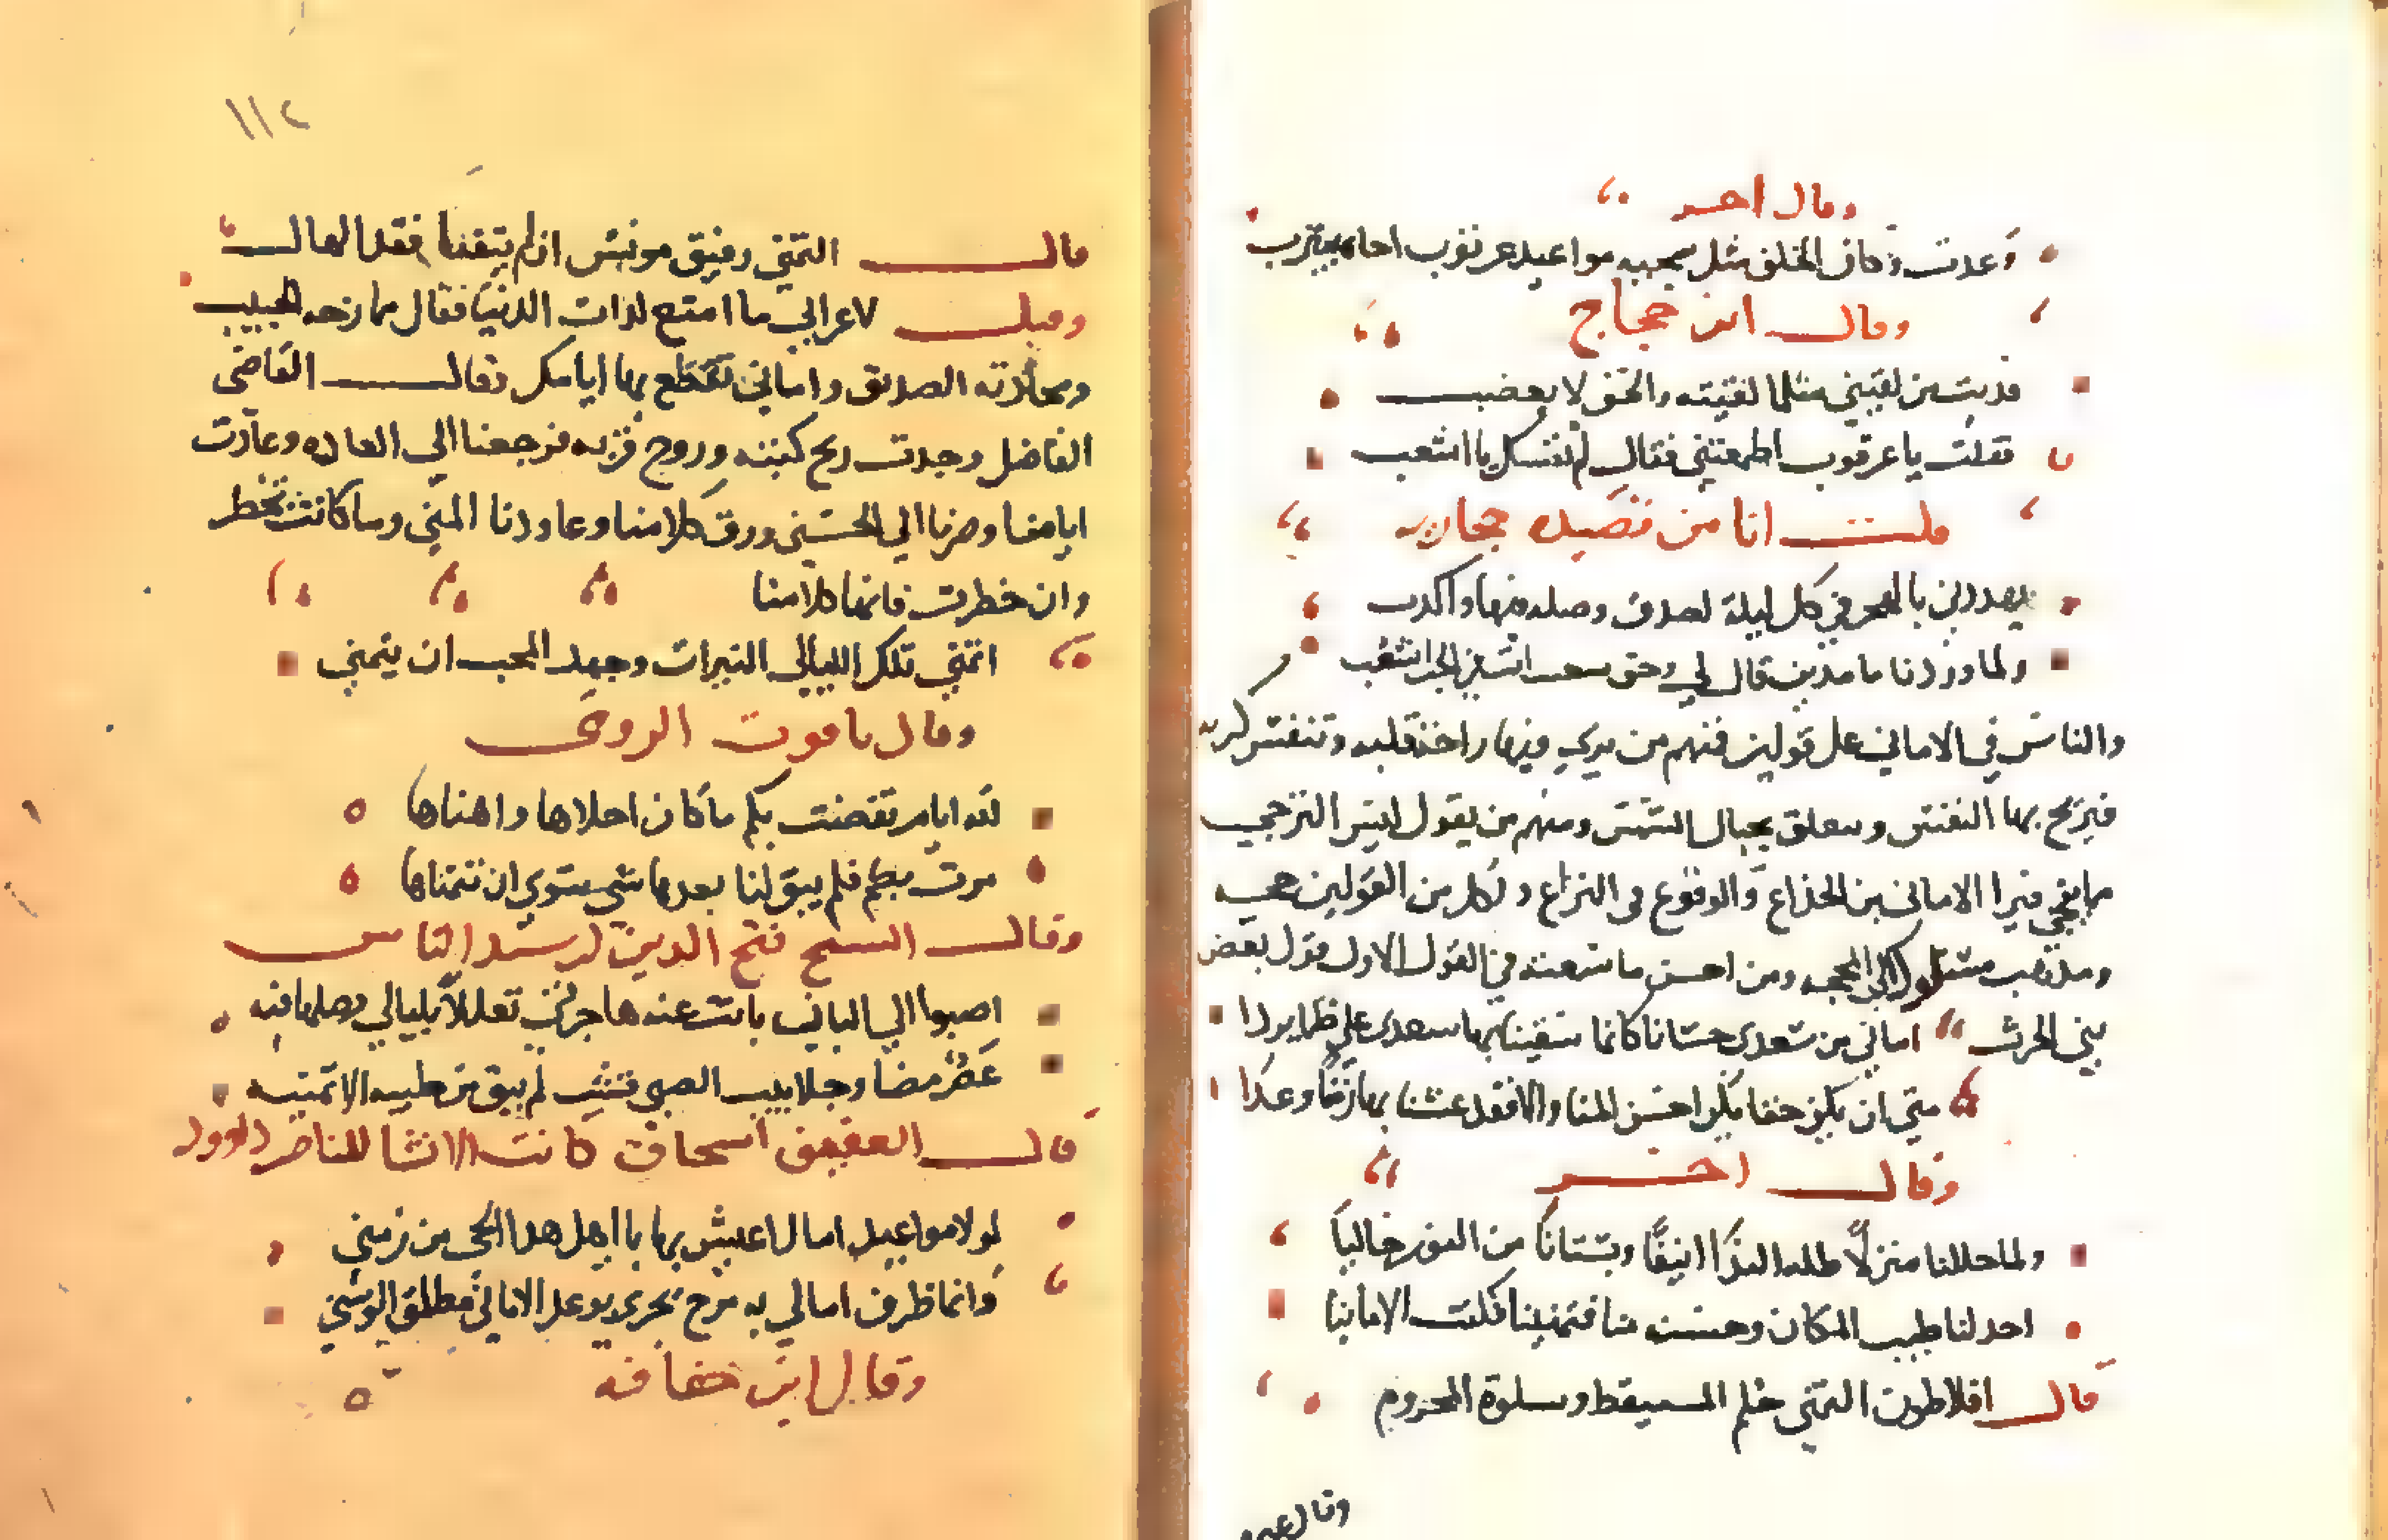 وقال اخر
وعدت وكان الخلف مثل سجيه مواعيد عرقوب اخاه بيترب
وقال ابن حجاج
فديت من لقبني مثلما لقيته والحق لا يغضب
فقلت يا عرقوب اطمعتني فقال لم نفسك يا اشعب
قلت انا من قصيده حجازيه
يهددني بالهجر في كل ليلة وصله منها واكدب
ولما وردنا ما مدين قال لي وحق شعيب انت الى اشعب
والناس في الاماني على قولين فمنهم من يري فيها راحة قلبه وتنفس كربه
فيريح بها النفس ويتعلق بحبال الشمس ومنهم من يقول ليس الترجي
مما ينجي فيرا الاماني من الخداع والوقوع في النزاع ولكل من القولين حجه
ومذهب مسلوك الى المحجه ومن احسن ما سمعته في القول الاول قول بعض
بني الحرث اماني من سعدى حسانا كانما سقينا بها سعدى على ظما بردا
متى ان يكن حقا يكن احسن المنا والا فقد عشنا بها زمنا رغدا
وقال اخر
ولما حللنا منزلا طله الندا انيقا وبستانا من النور حاليا
اجد لنا طيب المكان وحسنه منا فتمنينا فكنت الامانيا
قال افلاطون التمني حلم المستيقظ وسلوة المحروم
وقال غيره
١١٢
قال التمني رفيق مونس ان لم ينفعنا فقد الهاك
وقيل لاعرابي ما امتع لذات الدنيا فقال ممازحه الحبيب
ومحادثه الصديق واماني تقطع بها ايامك وقال القاضى
الفاضل وجدت ريح كتبه وروح قربه فرجعنا الي العاده وعادت
ايامنا وصرنا الي الحسني ورق كلامنا وعاودنا المني وما كانت تخطر
وان خطرت فانها كلامنا
اتمني تلك الليالي النيرات وجهد المحب ان يتمني
وقال ياقوت الرومى
لله ايام تقضت بكم ما كان احلاها واهناها
مرت بكم فلم يبق لنا بعدها شي سوي ان نتمناها
وقال الشيخ فتح الدين بن سيد الناس
اصبوا الي البان بانت عنه هاجرتي تعللا بليالي وصلها فيه
عصر مضا وجلابيب الصبي قشب لم يبق من طيبه الا تمنيه
قال العفيف اسحاق كاتب الانشا للناصر داوود
لولا مواعيد امال اعيش بها يا اهل هذا الحي من زمني
وانما طرف امالي به مرح تجري بوعد الاماني مطلق الرسن
وقال ابن خفاجه